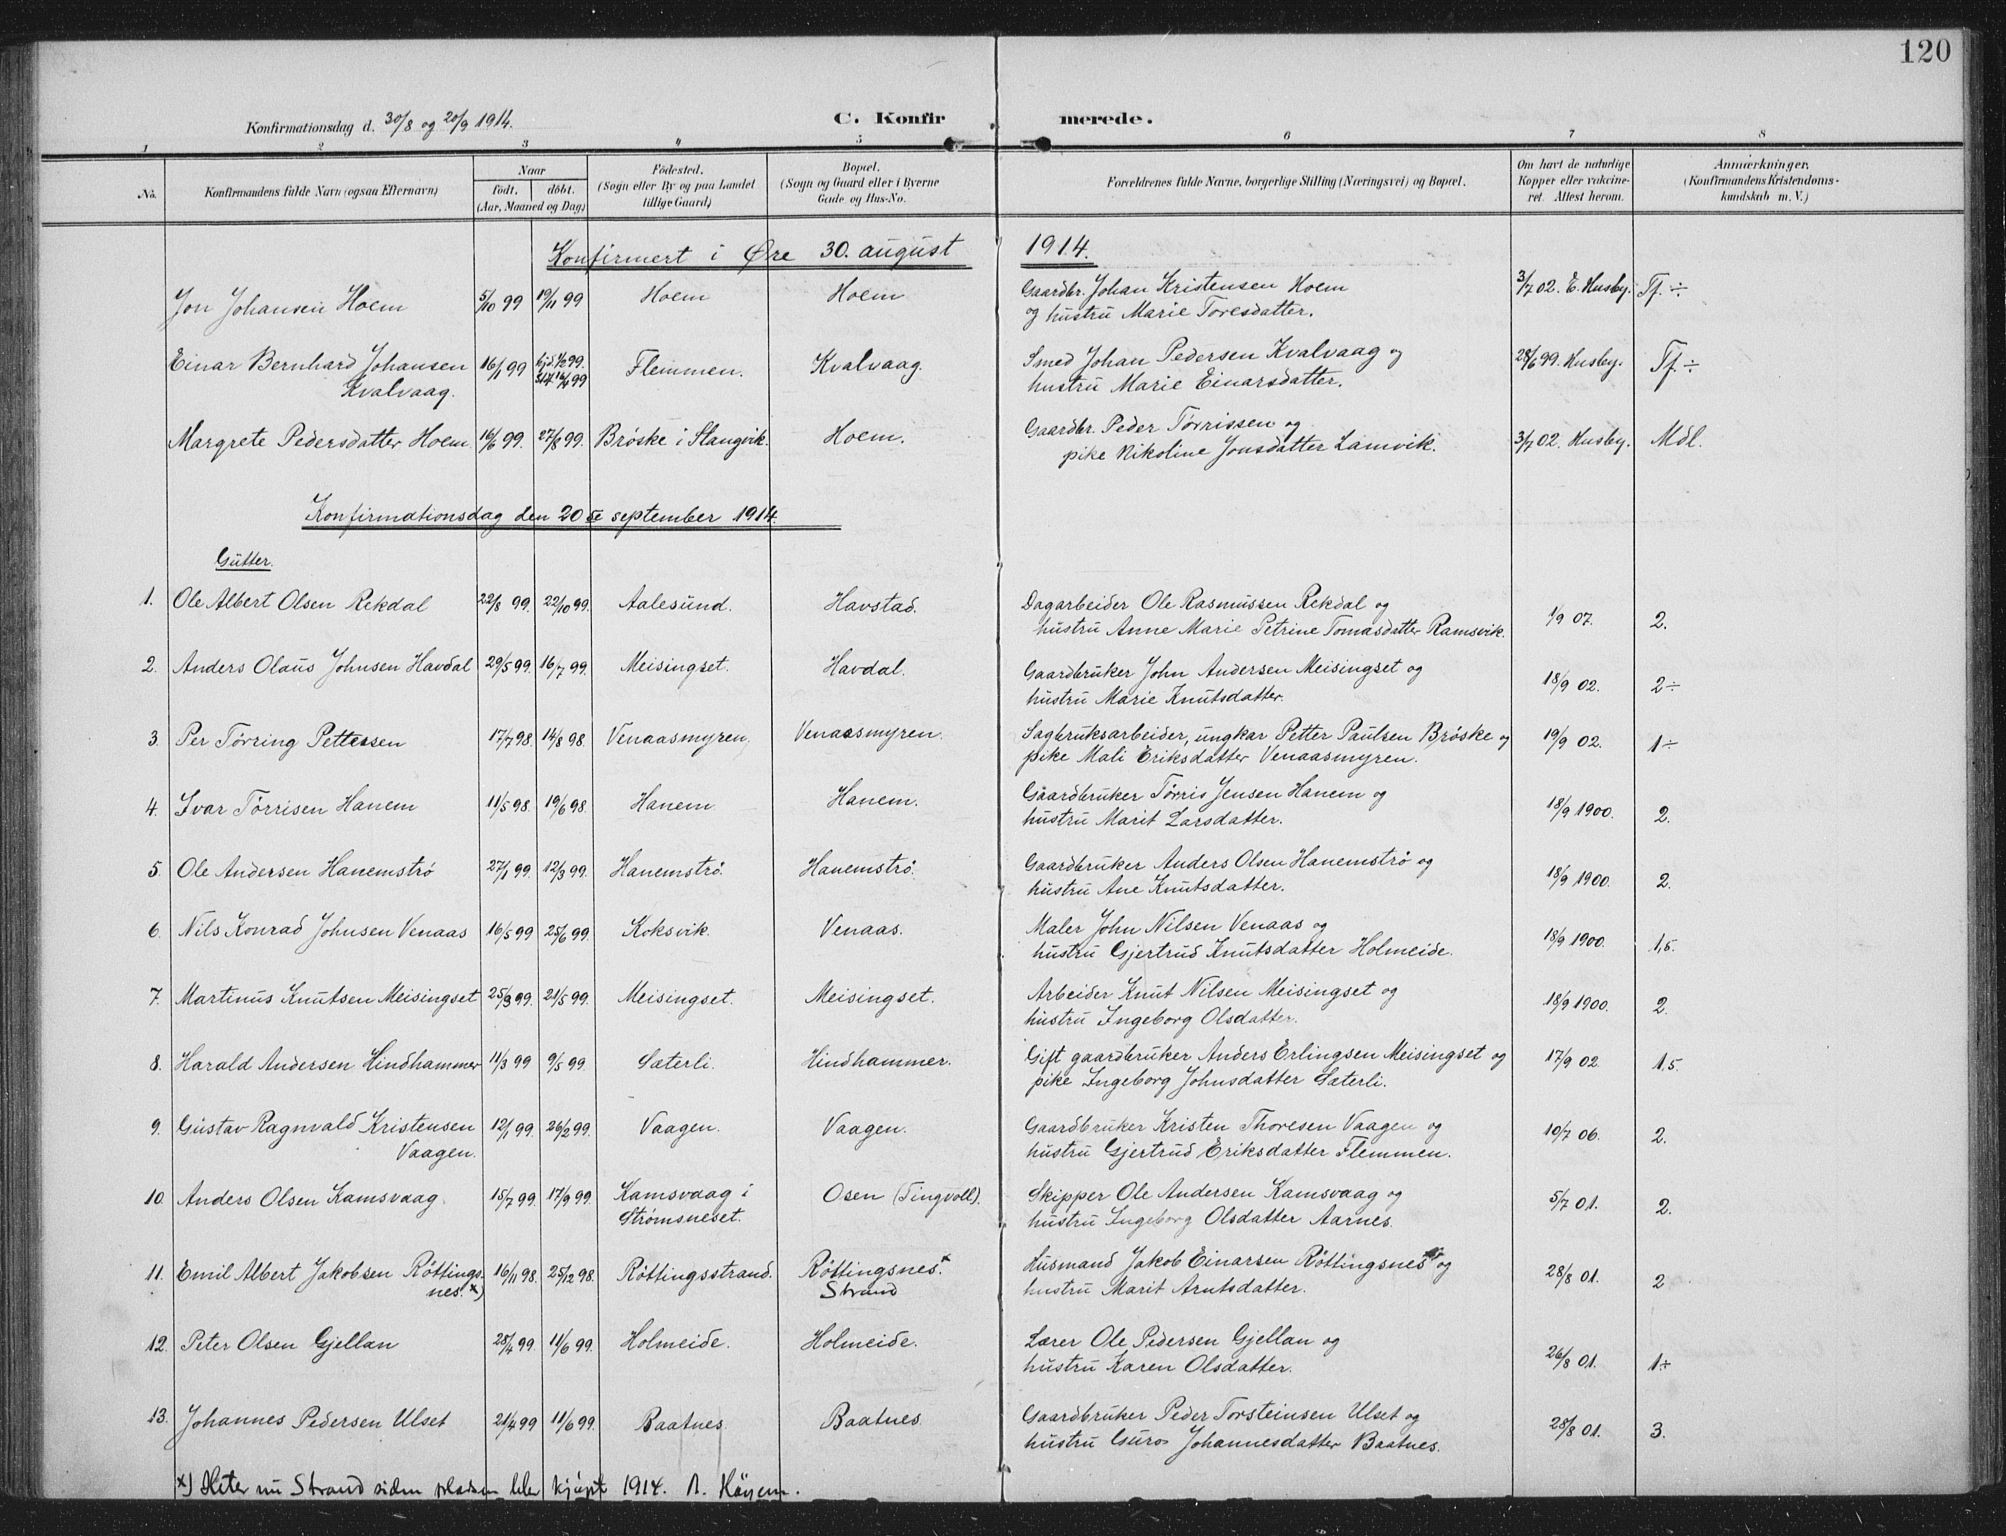 120
Konfirmationsdag d. 30/8 og 20/9 1914.
C. Konfirmerede.
1 2 3 4 5 6 7 8
No. Konfirmandens fulde Navn (ogsaa Efternavn) Naar født, døbt. (Aar, Maaned og Dag) Fødested. (Sogn eller By og paa Landet tillige Gaard) Bopæl. (Sogn og Gaard eller i Byerne Gade og Hus-No. Forældrenes fulde Navne, borgerlige Stilling (Næringsvei) og Bopæl. Om havt de naturlige Kopper eller vakcineret. Attest herom. Anmærkninger. (Konfirmandens Kristendomskundskab m. V.)
Konfirmert i Øre 30. august 1914.
Jon Johansen Hoem 5/10 99 19/11 99 Hoem Hoem Gaardbr. Johan Kristensen Hoem 3/7 02. E. Husby. Tf. ÷
og hustru Marie Toresdatter.
Einar Bernhard Johansen 16/1 99 Flemmen. Kvalvaag. Smed Johan Pedersen Kvalvaag og 28/6 99. Husby. Tf. ÷
Kvalvaag. hustru Marie Einarsdatter.
Margrete Pedersdatter Hoem 16/6 99. 27/8 99. Brøske i Stangvik. Hoem. Gaardbr. Peder Tørrissen og 3/7 02. Husby. Mdl.
pike Nikoline Jonsdatter Lamvik.
Konfirmationsdag den 20de september 1914.
Gutter.
1. Ole Albert Olsen Rekdal 22/8 99. 22/10 99. Aalesund. Havstad. Dagarbeider Ole Rasmussen Rekdal og 1/9 07. 2.
hustru Anne Marie Petrine Tomasdatter Ramsvik.
2. Anders Olaus Johnsen Havdal 29/5 99. 16/7 99. Meisingset. Havdal. Gaardbruker John Andersen Meisingset og 18/9 02. 2÷
hustru Marie Knutsdatter.
3. Per Tørring Pettersen 17/7 98. 14/8 98. Venaasmyren, Venaasmyren. Sagbruksarbeider, ungkar Petter Paulsen Brøske og 19/9 02. 1÷
pike Mali Eriksdatter Venaasmyren.
4. Ivar Tørrisen Hanem 11/5 98. 19/6 98. Hanem Hanem. Gaardbruker Tørris Jensen Hanem og 18/9 1900. 2.
hustru Marit Larsdatter.
5. Ole Andersen Hanemstrø 27/1 99. 12/3 99. Hanemstrø. Hanemstrø. Gaardbruker Anders Olsen Hanemstrø og 18/9 1900. 2.
hustru Ane Knutsdatter.
6. Nils Konrad Johnsen Venaas 16/5 99 25/6 99. Koksvik. Venaas. Maler John Nilsen Venaas og 18/9 1900. 1,5.
hustru Gjertrud Knutsdatter Holmeide.
7. Martinus Knutsen Meisingset 25/3 99. 21/5 99. Meisingset. Meisingset. Arbeider Knut Nilsen Meisingset og 18/9 1900. 2.
hustru Ingeborg Olsdatter.
8. Harald Andersen Hindhammer 11/3 99 9/5 99. Sæterli. Hindhammer. Gift gaardbruker Anders Erlingsen Meisingset og 17/9 02. 1,5.
pike Ingeborg Johnsdatter Sæterli.
9. Gustav Ragnvald Kristensen 12/1 99. 26/2 99. Vaagen. Vaagen. Gaardbruker Kristen Thoresen Vaagen og 10/7 06. 2.
Vaagen. hustru Gjertrud Eriksdatter Flemmen.
10. Anders Olsen Kamsvaag. 15/7 99. 17/9 99. Kamsvaag i Osen (Tingvoll). Skipper Ole Andersen Kamsvaag og 5/7 01. 2.
Strømsneset. hustru Ingeborg Olsdatter Aarnes.
11. Emil Albert Jakobsen Røttings- 16/11 98. 25/12 98. Røttingsstrand. Røttingsnes.x Husmand Jakob Einarsen Røttingsnes og 28/8 01. 2
nes. x) Strand hustru Marit Arntsdatter.
12. Peter Olsen Gjellan 28/4 99. 11/6 99. Holmeide. Holmeide. Lærer Ole Pedersen Gjellan og 26/8 01. 1÷
hustru Karen Olsdatter.
13. Johannes Pedersen Ulset 21/4 99 11/6 99. Baatnes. Baatnes. Gaardbruker Peder Torsteinsen Ulset og 28/8 01. 3.
hustru Guro Johannesdatter Baatnes.
x) Heter nu Strand siden pladsen blev kjøpt 1914.